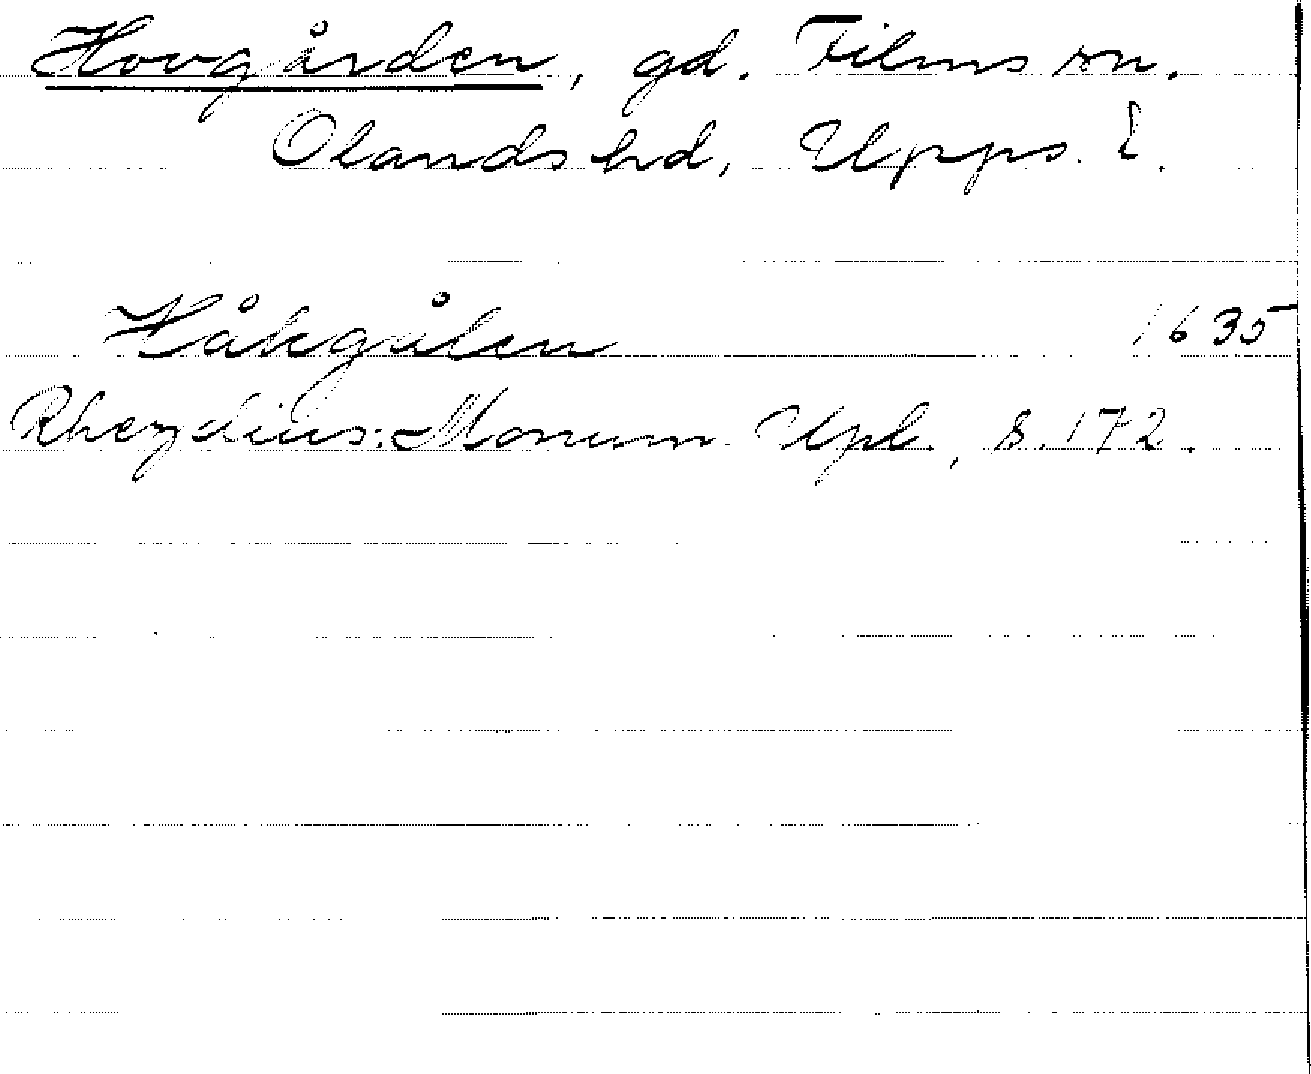 Hovgården, gd. Films sn.
Olands hd, Upps. l.
Håkgålen 1635
Rhezelius: Monum. Upl., s. 172.